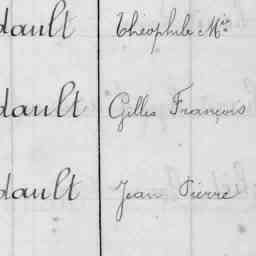 dault Théophile M^ie
dault Gilles François
dault Jean Pierre